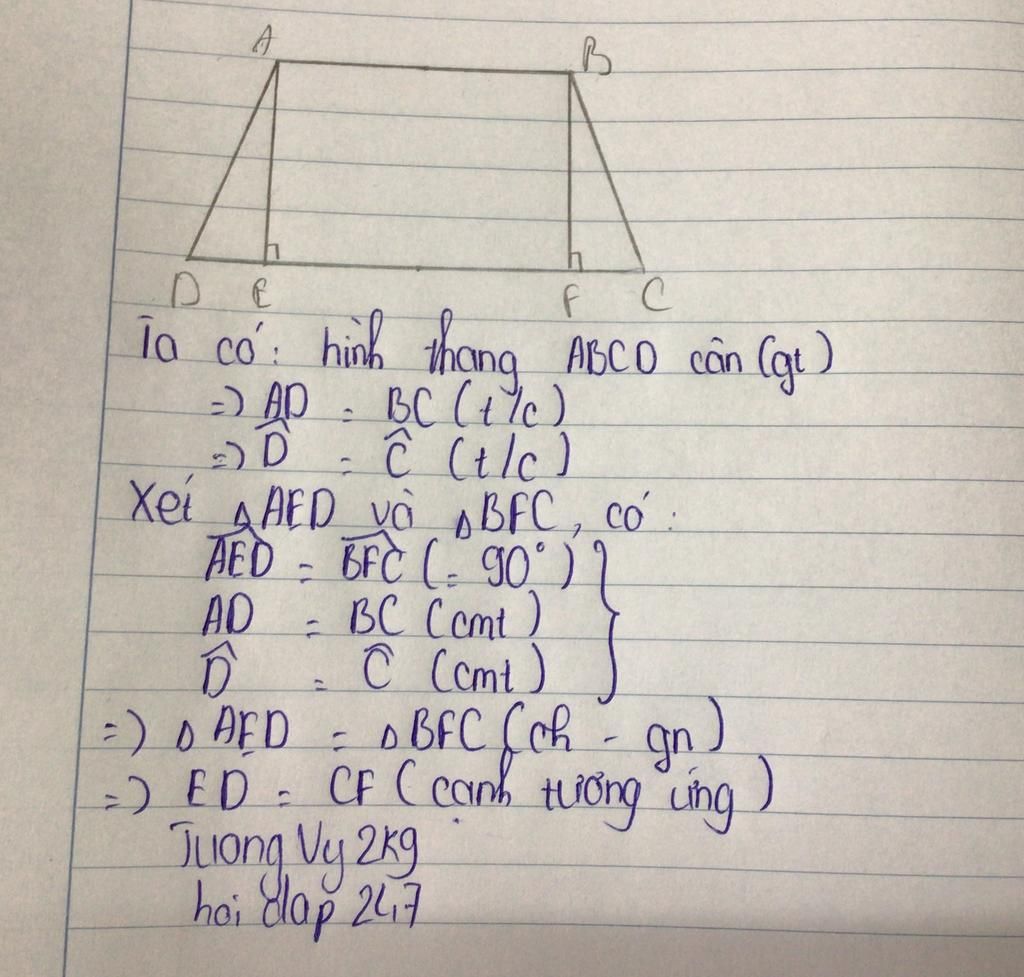 A B
D E F C
Ta có: hình thang ABCD cân (gt)
=) AD = BC (t/c)
=) D̂ = Ĉ (t/c)
Xét △AED và △BFC, có:
AED = BFC (= 90°) }
AD = BC (cmt)
D̂ = Ĉ (cmt)
=) △AED = △BFC (ch - gn)
=) ED = CF (cạnh tương ứng)
Tuong Vy 2kg
hoi đap 247